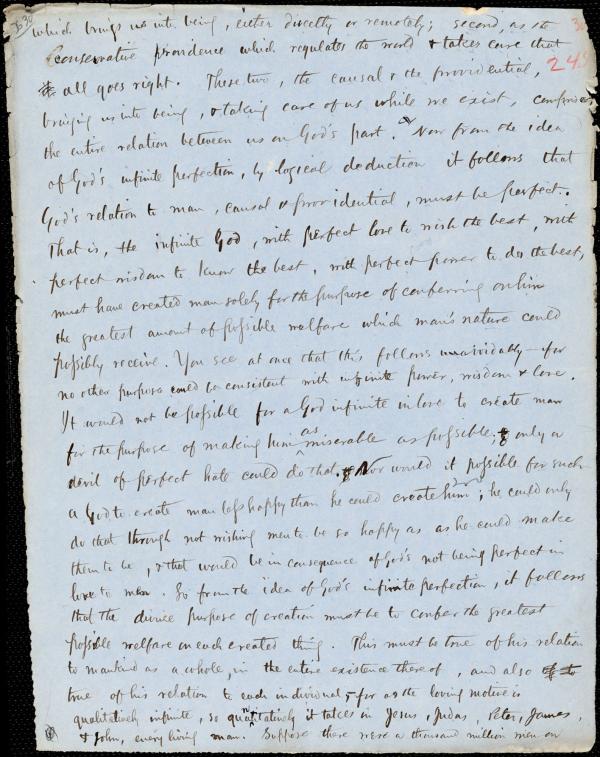 which brings us into being, either directly or remotely; second, as the
conservative providence which regulates the world & takes care that
all goes right. These two, the causal & the providential,
245
bringing us into being, & taking care of us while we exist, comprise
the entire relation between us on God's part. Now from the idea
of God's infinite perfection, by logical deduction it follows that
God's relation to man, causal & providential, must be perfect.
That is, the infinite God, with perfect love to wish the best, with
perfect wisdom to know the best, with perfect power to do the best,
must have created man solely for the purpose of conferring on him
the greatest amount of possible welfare which man's nature could
possibly receive. You see at once that this follows unavoidably - for
no other purpose could be consistent with infinite power, wisdom & love.
It would not be possible for a God infinite in love to create man
for the purpose of making him as miserable as possible; only a
devil of perfect hate could do that. Nor would it possible for such
a God to create man less happy than he could create him; he could only
do that through not wishing men to be so happy as he could make
them to be, & that would be in consequence of God's not being perfect in
love to men. So from the idea of God's infinite perfection, it follows
that the divine purpose of creation must be to confer the greatest
possible welfare on each created thing. This must be true of his relation
to mankind as a whole, in the entire existence thereof, and also
true of his relation to each individual, - for as the loving motive is
qualitatively infinite, so quantitatively it takes in Jesus, Judas, Peter, James,
& John, every living man. Suppose there were a thousand million men on